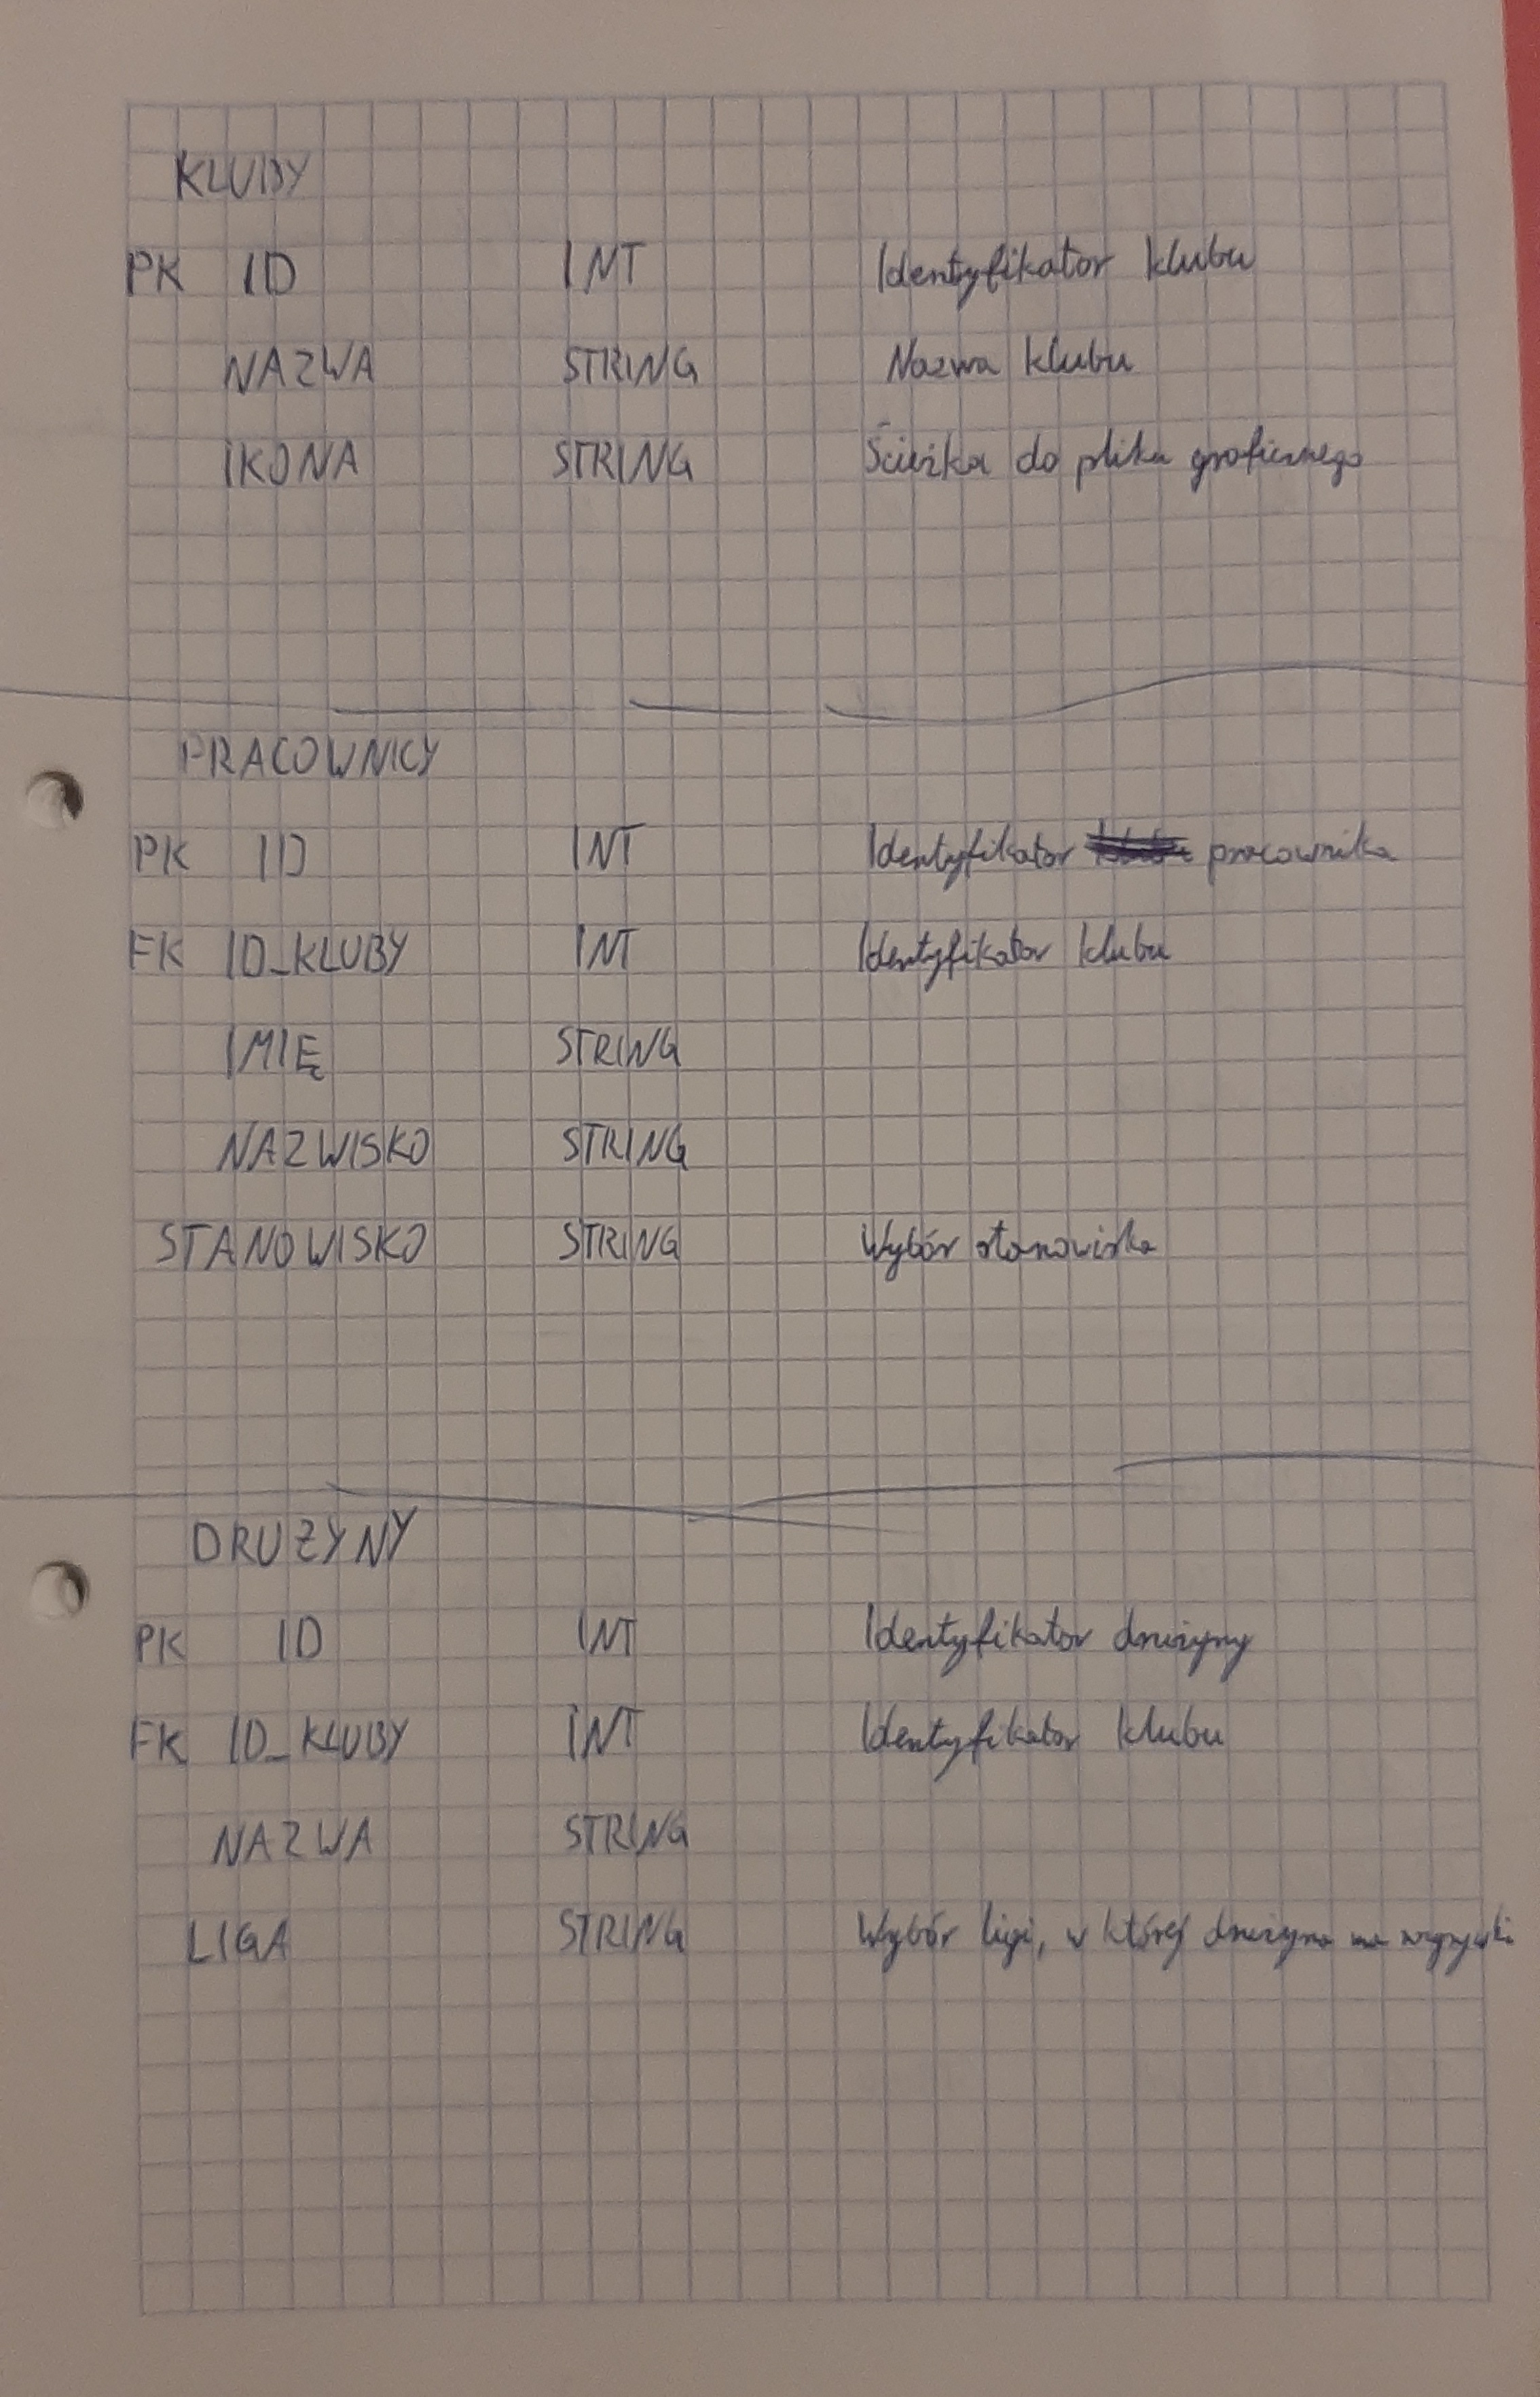 KLUBY
PK ID INT Identyfikator klubu
NAZWA STRING Nazwa klubu
IKONA STRING Ścieżka do pliku graficznego
PRACOWNICY
PK ID INT Identyfikator pracownika
FK ID_KLUBY INT Identyfikator klubu
IMIĘ STRING
NAZWISKO STRING
STANOWISKO STRING Wybór stanowiska
DRUŻYNY
PK ID INT Identyfikator drużyny
FK ID_KLUBY INT Identyfikator klubu
NAZWA STRING
LIGA STRING Wybór ligi, w której drużyna ma